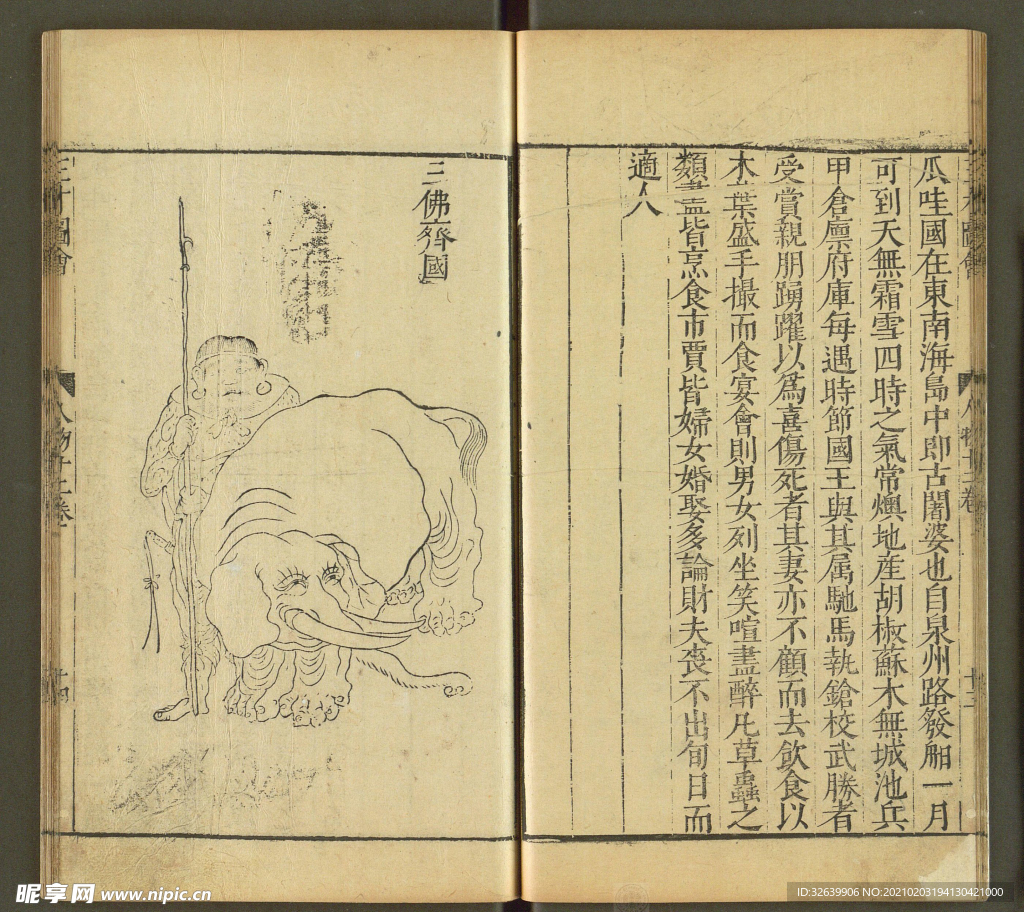 瓜哇國在東南海島中即古闍婆也自泉州路發舶一月
可到天無霜雪四時之氣常燠地産胡椒蘇木無城池兵
甲倉廪府庫每遇時節國王與其属馳馬執鎗校武勝者
受賞親朋踴躍以爲喜傷死者其妻亦不顧而去飲食以
木葉盛手撮而食宴會則男女列坐笑喧盡醉凡草蟲之
類盡皆烹食市賈皆婦女婚娶多論財夫喪不出旬日而
適人
三才圖會
人物十二卷
十三
三佛齊國
三才圖會
人物十二卷
十四
昵享网 www.nipic.cn
ID:32639906 NO:20210203194130421000